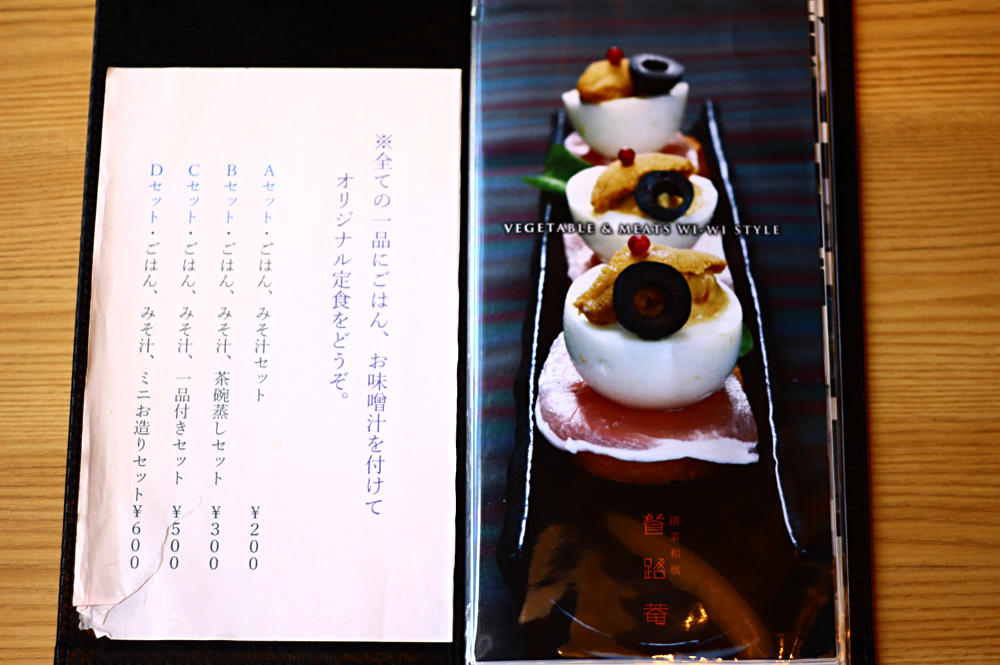 ※全ての一品にごはん、お味噌汁を付けて
オリジナル定食をどうぞ。
Aセット・ごはん、みそ汁セット ¥200
Bセット・ごはん、みそ汁、茶碗蒸しセット ¥300
Cセット・ごはん、みそ汁、一品付きセット ¥500
Dセット・ごはん、みそ汁、ミニお造りセット¥600
VEGETABLE & MEATS WI-WI STYLE
創業和風
路菴